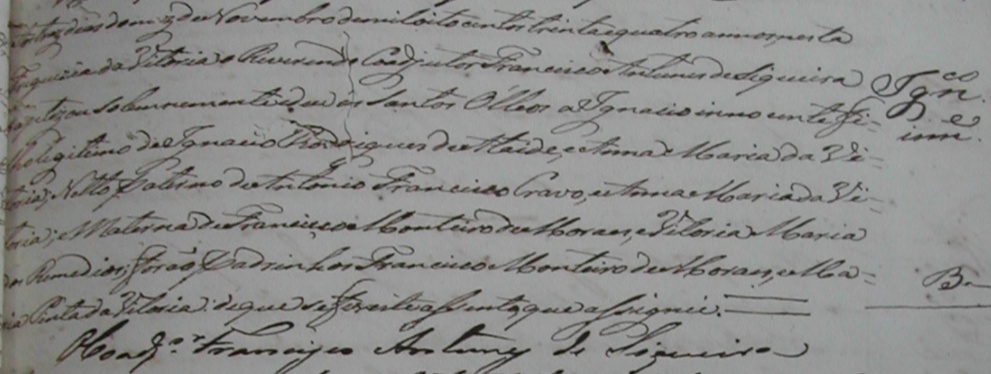 dias do mez de Novembro de mil oito centos trinta e quatro annos, nesta
Freguezia da Vitoria o Reverendo Coadjutor Francisco Antunes de Siqueira
baptizou solemnemente e deo os Santos Olleos a Ignacio innocente Fi=
lho legitimo de Ignacio Rodrigues de Ataide, e Anna Maria da Vi=
toria; Netto Paterno de Antonio Francisco Cravo, e Anna Maria da Vi=
toria; e Materna de Francisco Monteiro de Moraes, e Vitoria Maria
dos Remedios; forão Padrinhos Francisco Monteiro de Moraes, e Ma=
ria Pinta da Vitoria: de que se fez este assento, que assignei.
O Coadj.or Francisco Antunes de Siqueira
Ign.co
inn.e
B.